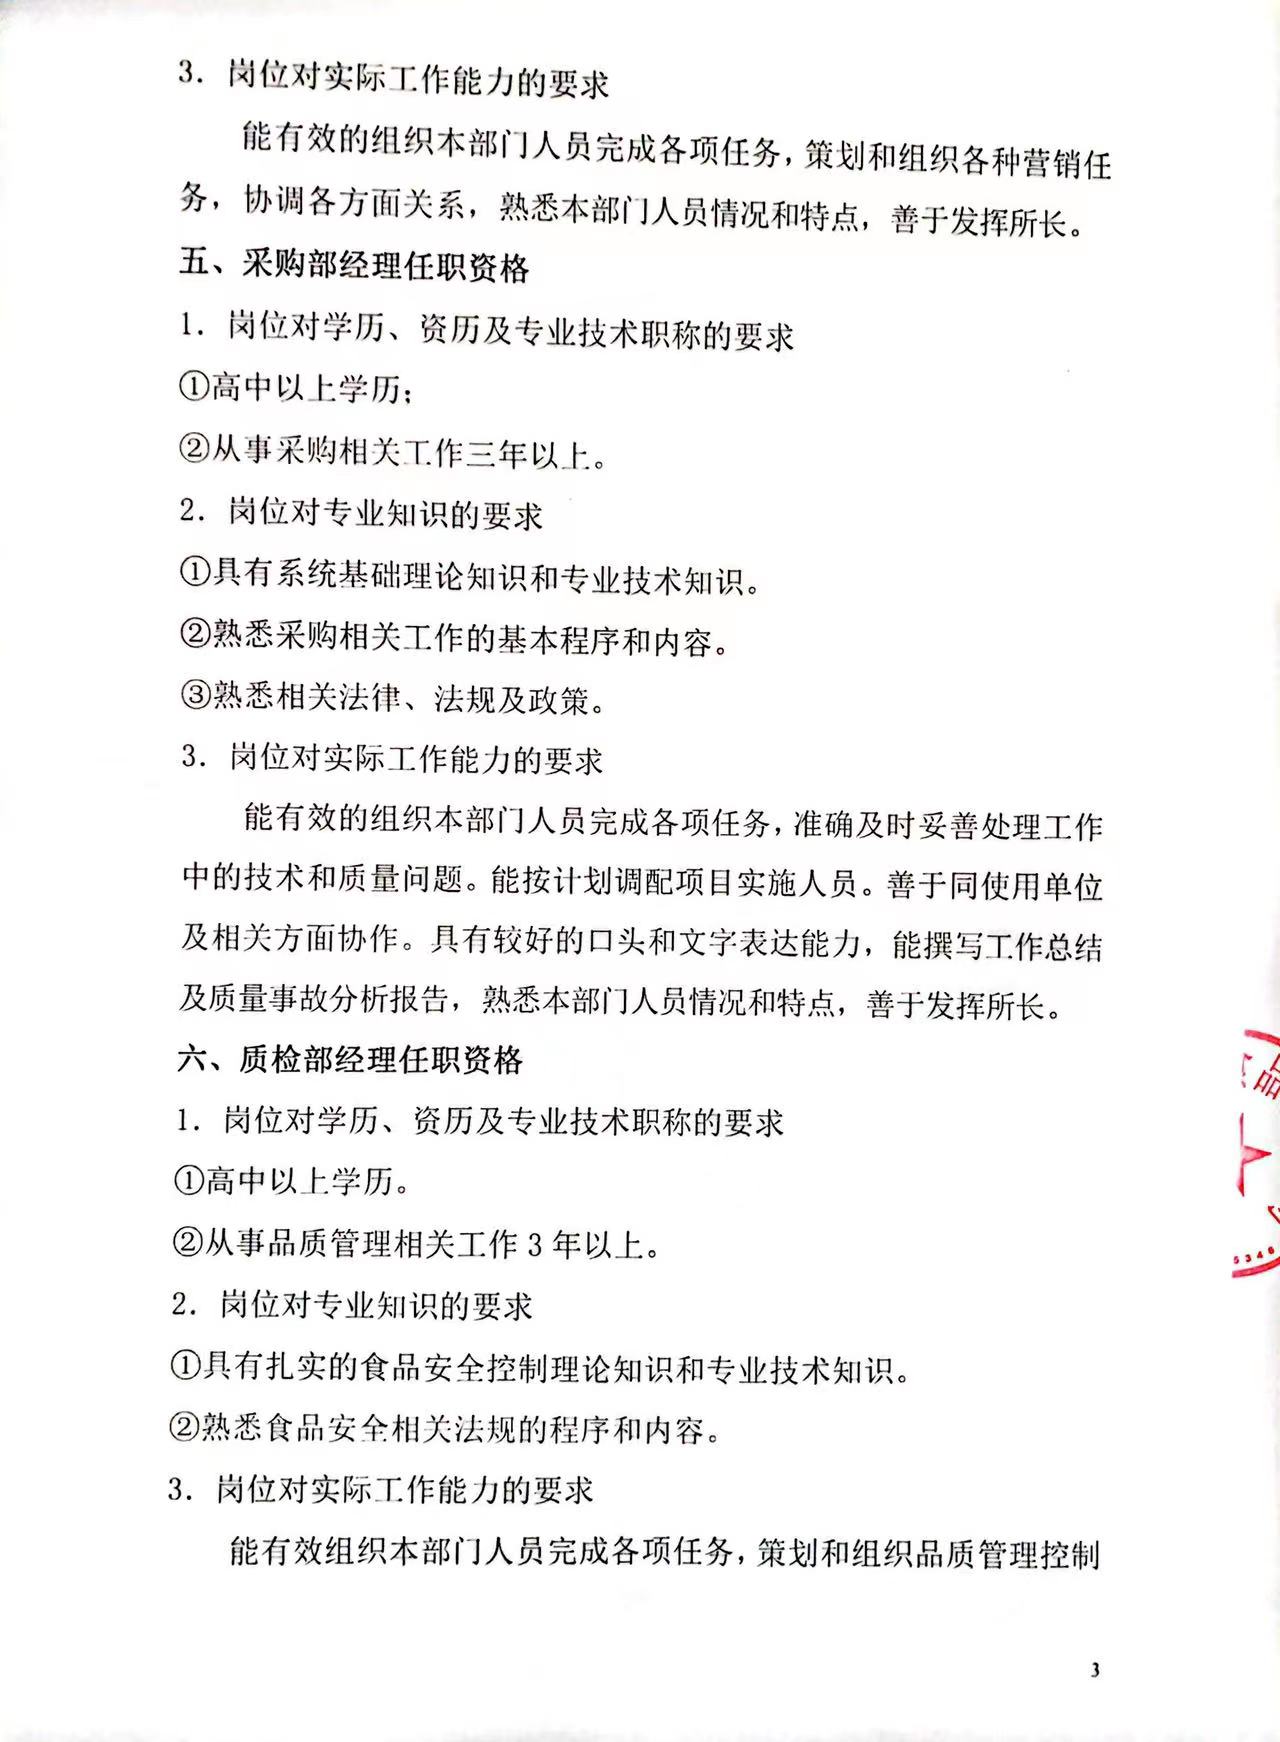 3. 岗位对实际工作能力的要求
能有效的组织本部门人员完成各项任务，策划和组织各种营销任
务，协调各方面关系，熟悉本部门人员情况和特点，善于发挥所长。
五、采购部经理任职资格
1. 岗位对学历、资历及专业技术职称的要求
①高中以上学历；
②从事采购相关工作三年以上。
2. 岗位对专业知识的要求
①具有系统基础理论知识和专业技术知识。
②熟悉采购相关工作的基本程序和内容。
③熟悉相关法律、法规及政策。
3. 岗位对实际工作能力的要求
能有效的组织本部门人员完成各项任务，准确及时妥善处理工作
中的技术和质量问题。能按计划调配项目实施人员。善于同使用单位
及相关方面协作。具有较好的口头和文字表达能力，能撰写工作总结
及质量事故分析报告，熟悉本部门人员情况和特点，善于发挥所长。
六、质检部经理任职资格
1. 岗位对学历、资历及专业技术职称的要求
①高中以上学历。
②从事品质管理相关工作 3 年以上。
2. 岗位对专业知识的要求
①具有扎实的食品安全控制理论知识和专业技术知识。
②熟悉食品安全相关法规的程序和内容。
3. 岗位对实际工作能力的要求
能有效组织本部门人员完成各项任务，策划和组织品质管理控制
品
5346
3